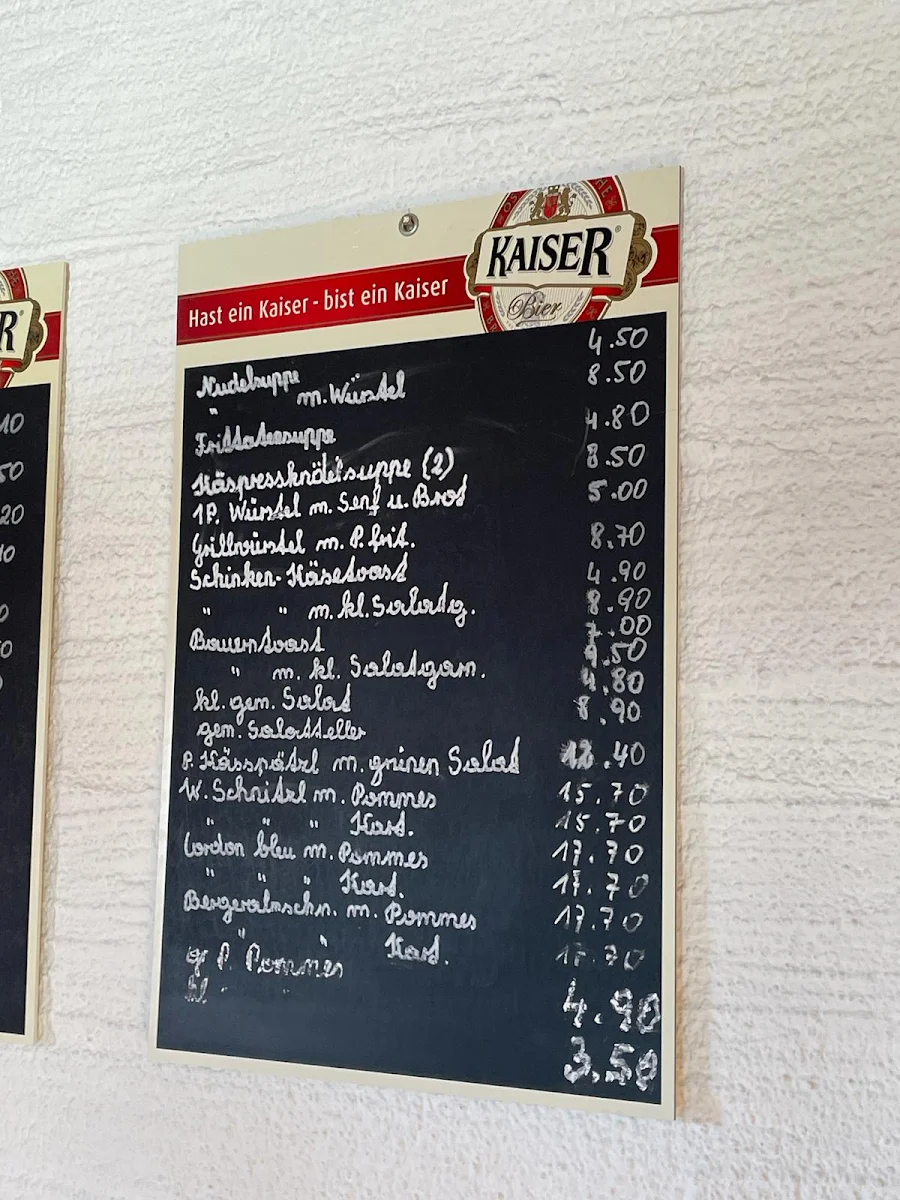 KAISER
Bier
Hast ein Kaiser - bist ein Kaiser
Nudelsuppe 4.50
" m. Würstel 8.50
Frittatensuppe 4.80
Käspressknödelsuppe (2) 8.50
1P. Würstel m. Senf u. Brot 5.00
Grillwürstel m. P. frit. 8.70
Schinken-Käsetoast 4.90
" " m. kl. Salatg. 8.90
Bauerntoast 7.00
" m. kl. Salatgarn. 9.50
kl. gem. Salat 4.80
gem. Salatteller 8.90
P. Kässpätzl m. grünen Salat 12.40
W. Schnitzl m. Pommes 15.70
" " " Kart. 15.70
Cordon bleu m. Pommes 17.70
" " " Kart. 17.70
Bergeralmschn. m. Pommes 17.70
" " Kart. 17.70
gr P. Pommes 4.90
kl " " 3.50
R
10
50
20
10
0
0